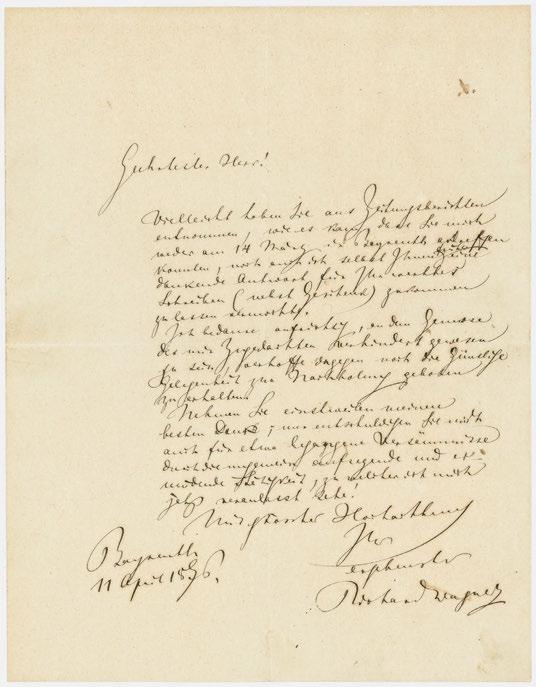 Geehrtester Herr!
Vielleicht haben Sie aus Zeitungsberichten
entnommen, wie es kam, dass Sie mich
weder am 14 März in Bayreuth antreffen
konnten, noch auch ich selbst Ihnen eine
dankende Antwort für Ihr werthes
Schreiben (nebst Geschenk) zukommen
zu lassen vermochte.
Ich bedaure aufrichtig, an dem Genusse
des mir Zugedachten verhindert gewesen
zu sein, verhoffe dagegen noch die günstige
Gelegenheit zur Nachholung geboten
zu erhalten.
Nehmen Sie einstweilen meinen
besten Dank, und entschuldigen Sie mich
auch für etwa begangene Versäumnisse
durch die ungemein aufregende und er-
müdende Thätigkeit, zu welcher ich mich
jetzt veranlasst sehe!
Mit grösster Hochachtung
Ihr
ergebenster
Richard Wagner
Bayreuth
11 April 1876.